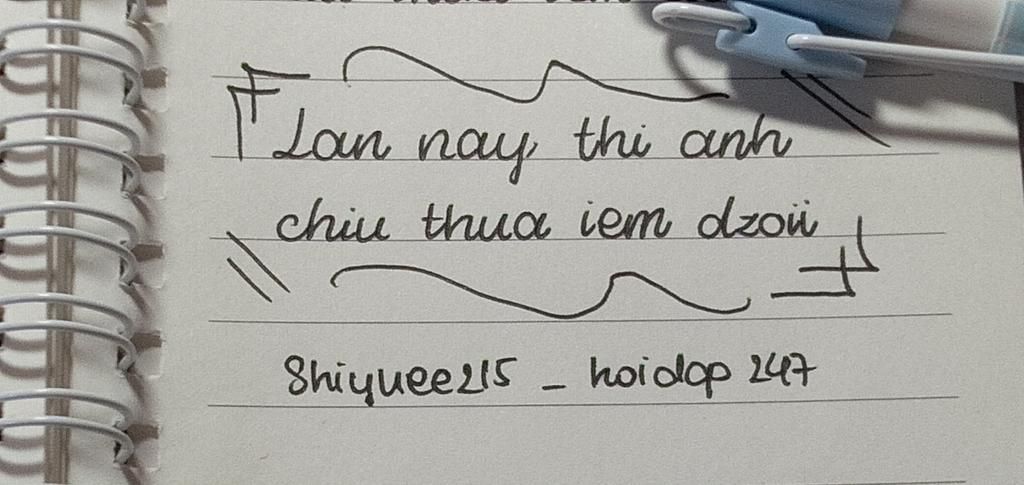 Lan nay, thi anh
chiu thua iem dzoii
Shiyuee215 _ hoidap 247